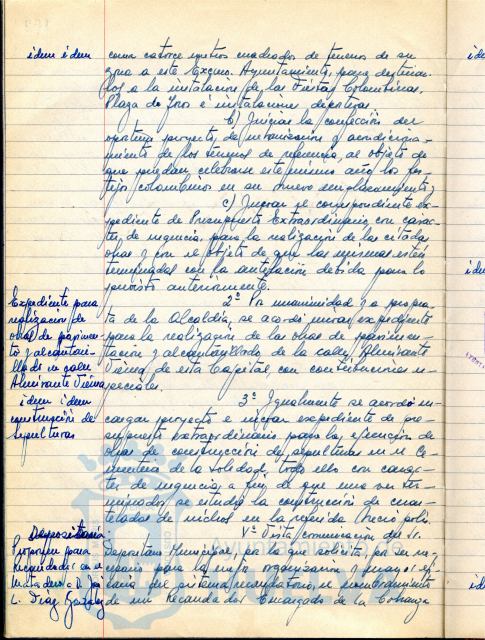 idem idem
como catorce metros cuadrados de terrenos de su
zona a este Excmo. Ayuntamiento, para destinar-
los a la instalación de las Fiestas Colombinas,
Plaza de Toros e instalaciones deportivas.
b) Iniciar la confección del
oportuno proyecto de urbanización y acondiciona-
miento de los terrenos de referencia, al objeto de
que puedan celebrarse este mismo año los fes-
tejos colombinos en su nuevo emplazamiento, y
c) Incoar el correspondiente ex-
pediente de Presupuesto Extraordinario, con carác-
ter de urgencia, para la realización de las citadas
obras y con el objeto de que las mismas estén
terminadas con la antelación debida para lo
previsto anteriormente.
Expediente para
realización de
obras de pavimen-
to y alcantari-
llado en calle
Almirante Viena
2º Por unanimidad y a propues-
ta de la Alcaldía, se acordó incoar expediente
para la realización de las obras de pavimen-
tación y alcantarillado de la calle Almirante
Viena, de esta Capital, con contribuciones es-
peciales.
idem idem
construcción de
sepulturas
3º Igualmente se acordó en-
cargar proyecto e incoar expediente de pre-
supuesto extraordinario para la ejecución de
obras de construcción de sepulturas en el Ce-
menterio de la Soledad, todo ello con carác-
ter de urgencia, a fin de que una vez ter-
minadas, se estudie la construcción de cuar-
teladas de nichos en la referida Necrópolis.
Depositaría.
Proponen para
Recaudador en el
Matadero a D. José
L. Díaz González
V= Vista comunicación del Sr.
Depositario Municipal, por la que solicita, por ser ne-
cesario para la mejor organización y mayor efi-
cacia del sistema recaudatorio, el nombramiento
de un Recaudador Encargado de la Cobranza